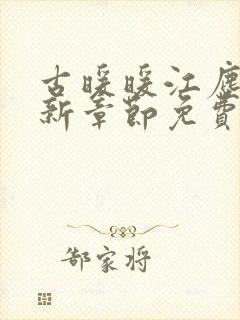 古暖暖江塵
新章節免費
郜家将